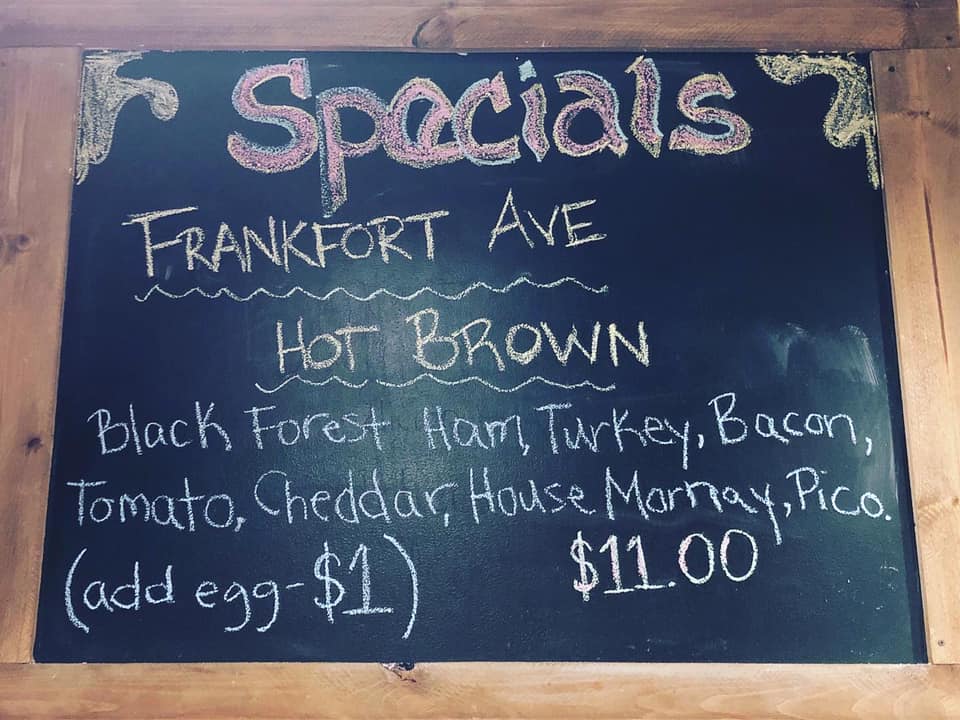 Specials
FRANKFORT AVE
HOT BROWN
Black Forest Ham, Turkey, Bacon,
Tomato, Cheddar, House Mornay, Pico.
(add egg-$1) $11.00